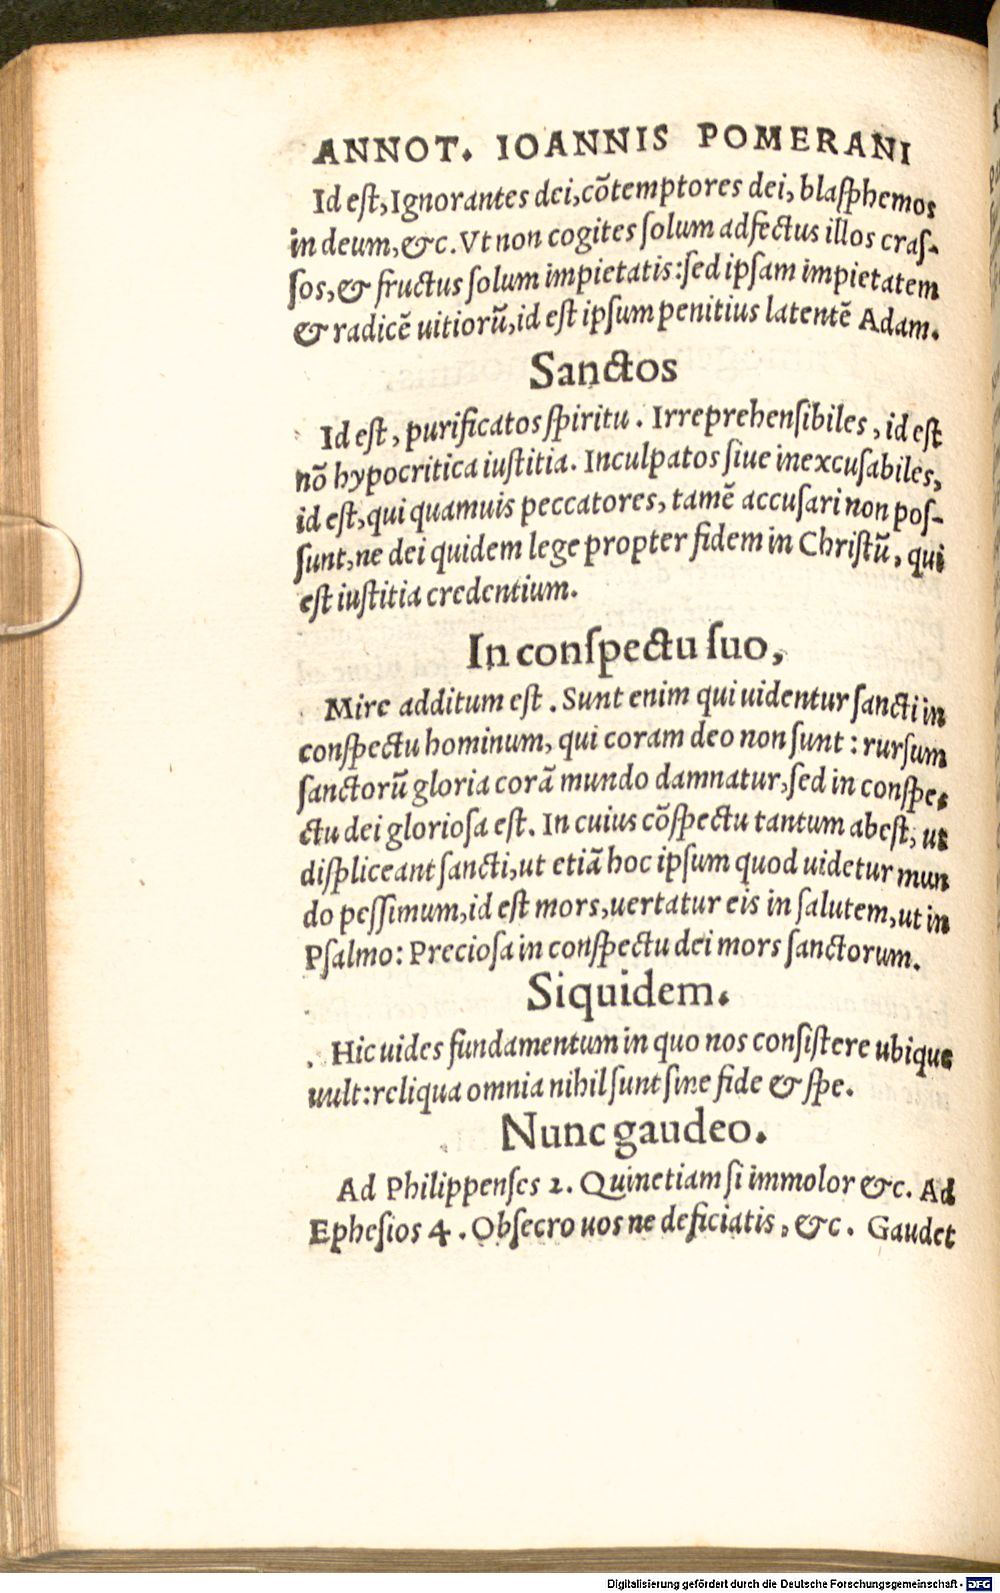 ANNOT. IOANNIS POMERANI
Id eſt, Ignorantes dei, cõtemptores dei, blaſphemos
in deum, &c. Vt non cogites ſolum adfectus illos craſ-
ſos, & fructus ſolum impietatis: ſed ipſam impietatem
& radicẽ uitiorũ, id eſt ipſum penitius latentẽ Adam.
Sanctos
Id eſt, purificatos ſpiritu. Irreprehenſibiles, id eſt
nõ hypocritica iuſtitia. Inculpatos ſiue inexcuſabiles,
id eſt, qui quamuis peccatores, tamẽ accuſari non poſ-
ſunt, ne dei quidem lege propter fidem in Chriſtũ, qui
eſt iuſtitia credentium.
In conſpectu ſuo,
Mire additum eſt. Sunt enim qui uidentur ſancti in
conſpectu hominum, qui coram deo non ſunt: rurſum
ſanctorũ gloria corã mundo damnatur, ſed in conſpe-
ctu dei glorioſa eſt. In cuius cõſpectu tantum abeſt, ut
diſpliceant ſancti, ut etiã hoc ipſum quod uidetur mun
do peſſimum, id eſt mors, uertatur eis in ſalutem, ut in
Pſalmo: Precioſa in conſpectu dei mors ſanctorum.
Siquidem.
Hic uides fundamentum in quo nos conſiſtere ubique
uult: reliqua omnia nihil ſunt ſine fide & ſpe.
Nunc gaudeo.
Ad Philippenſes 2. Quinetiam ſi immolor &c. Ad
Epheſios 4. Obſecro uos ne deficiatis, &c. Gaudet
Digitalisierung gefördert durch die Deutsche Forschungsgemeinschaft - DFG